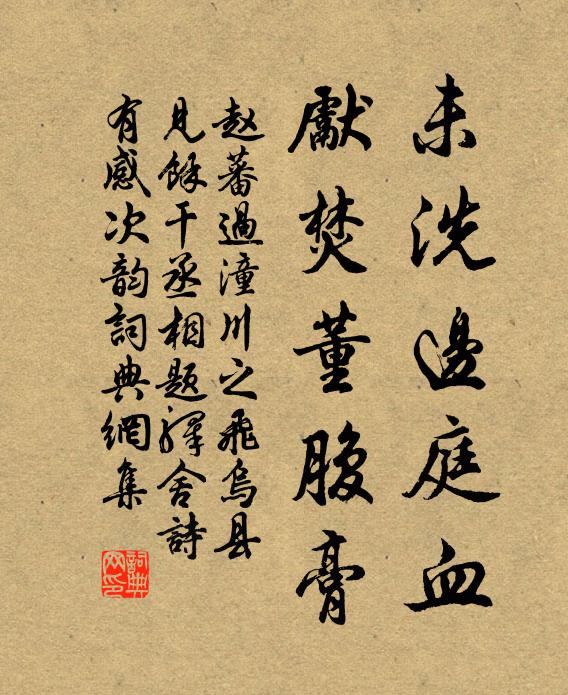 未洗邊庭血
獻焚董腹膏
赵蕃過潼川之飛烏县
見餘干丞相題驛舍詩
有感次韵詞典網集
詞典网印